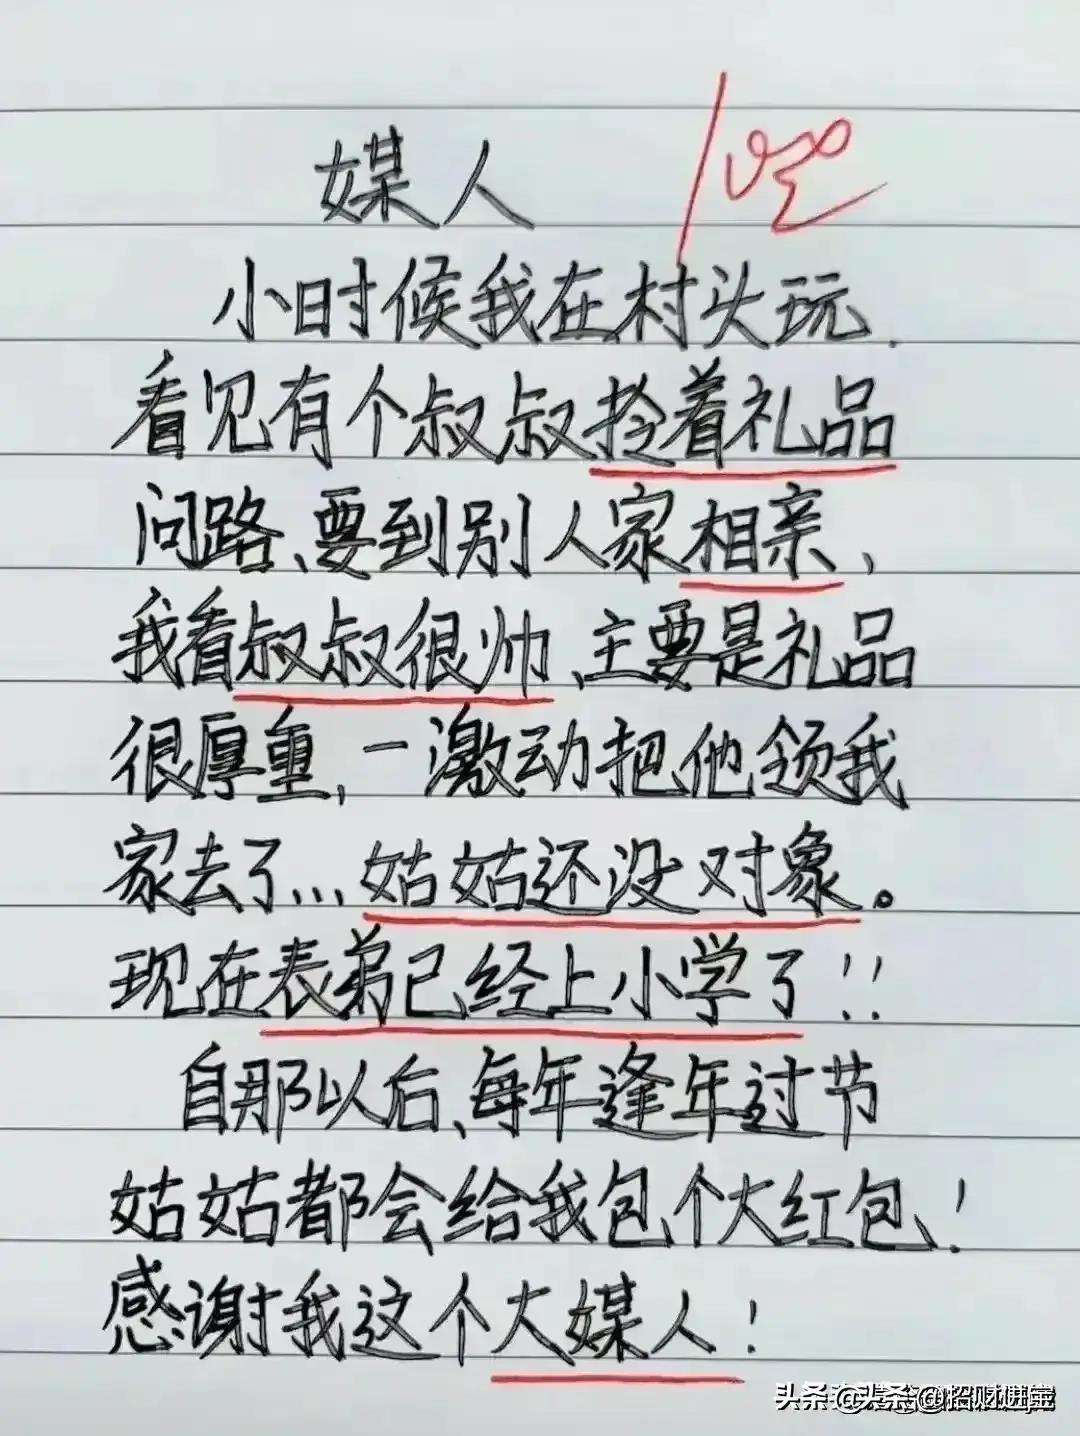 媒人
小时候我在村头玩.
看见有个叔叔拎着礼品
问路、要到别人家相亲、
我看叔叔很帅、主要是礼品
很厚重,一激动把他领我
家去了...姑姑还没对象。
现在表弟已经上小学了!!
自那以后、每年逢年过节
姑姑都会给我包个大红包!
感谢我这个大媒人!
头条@招财进宝